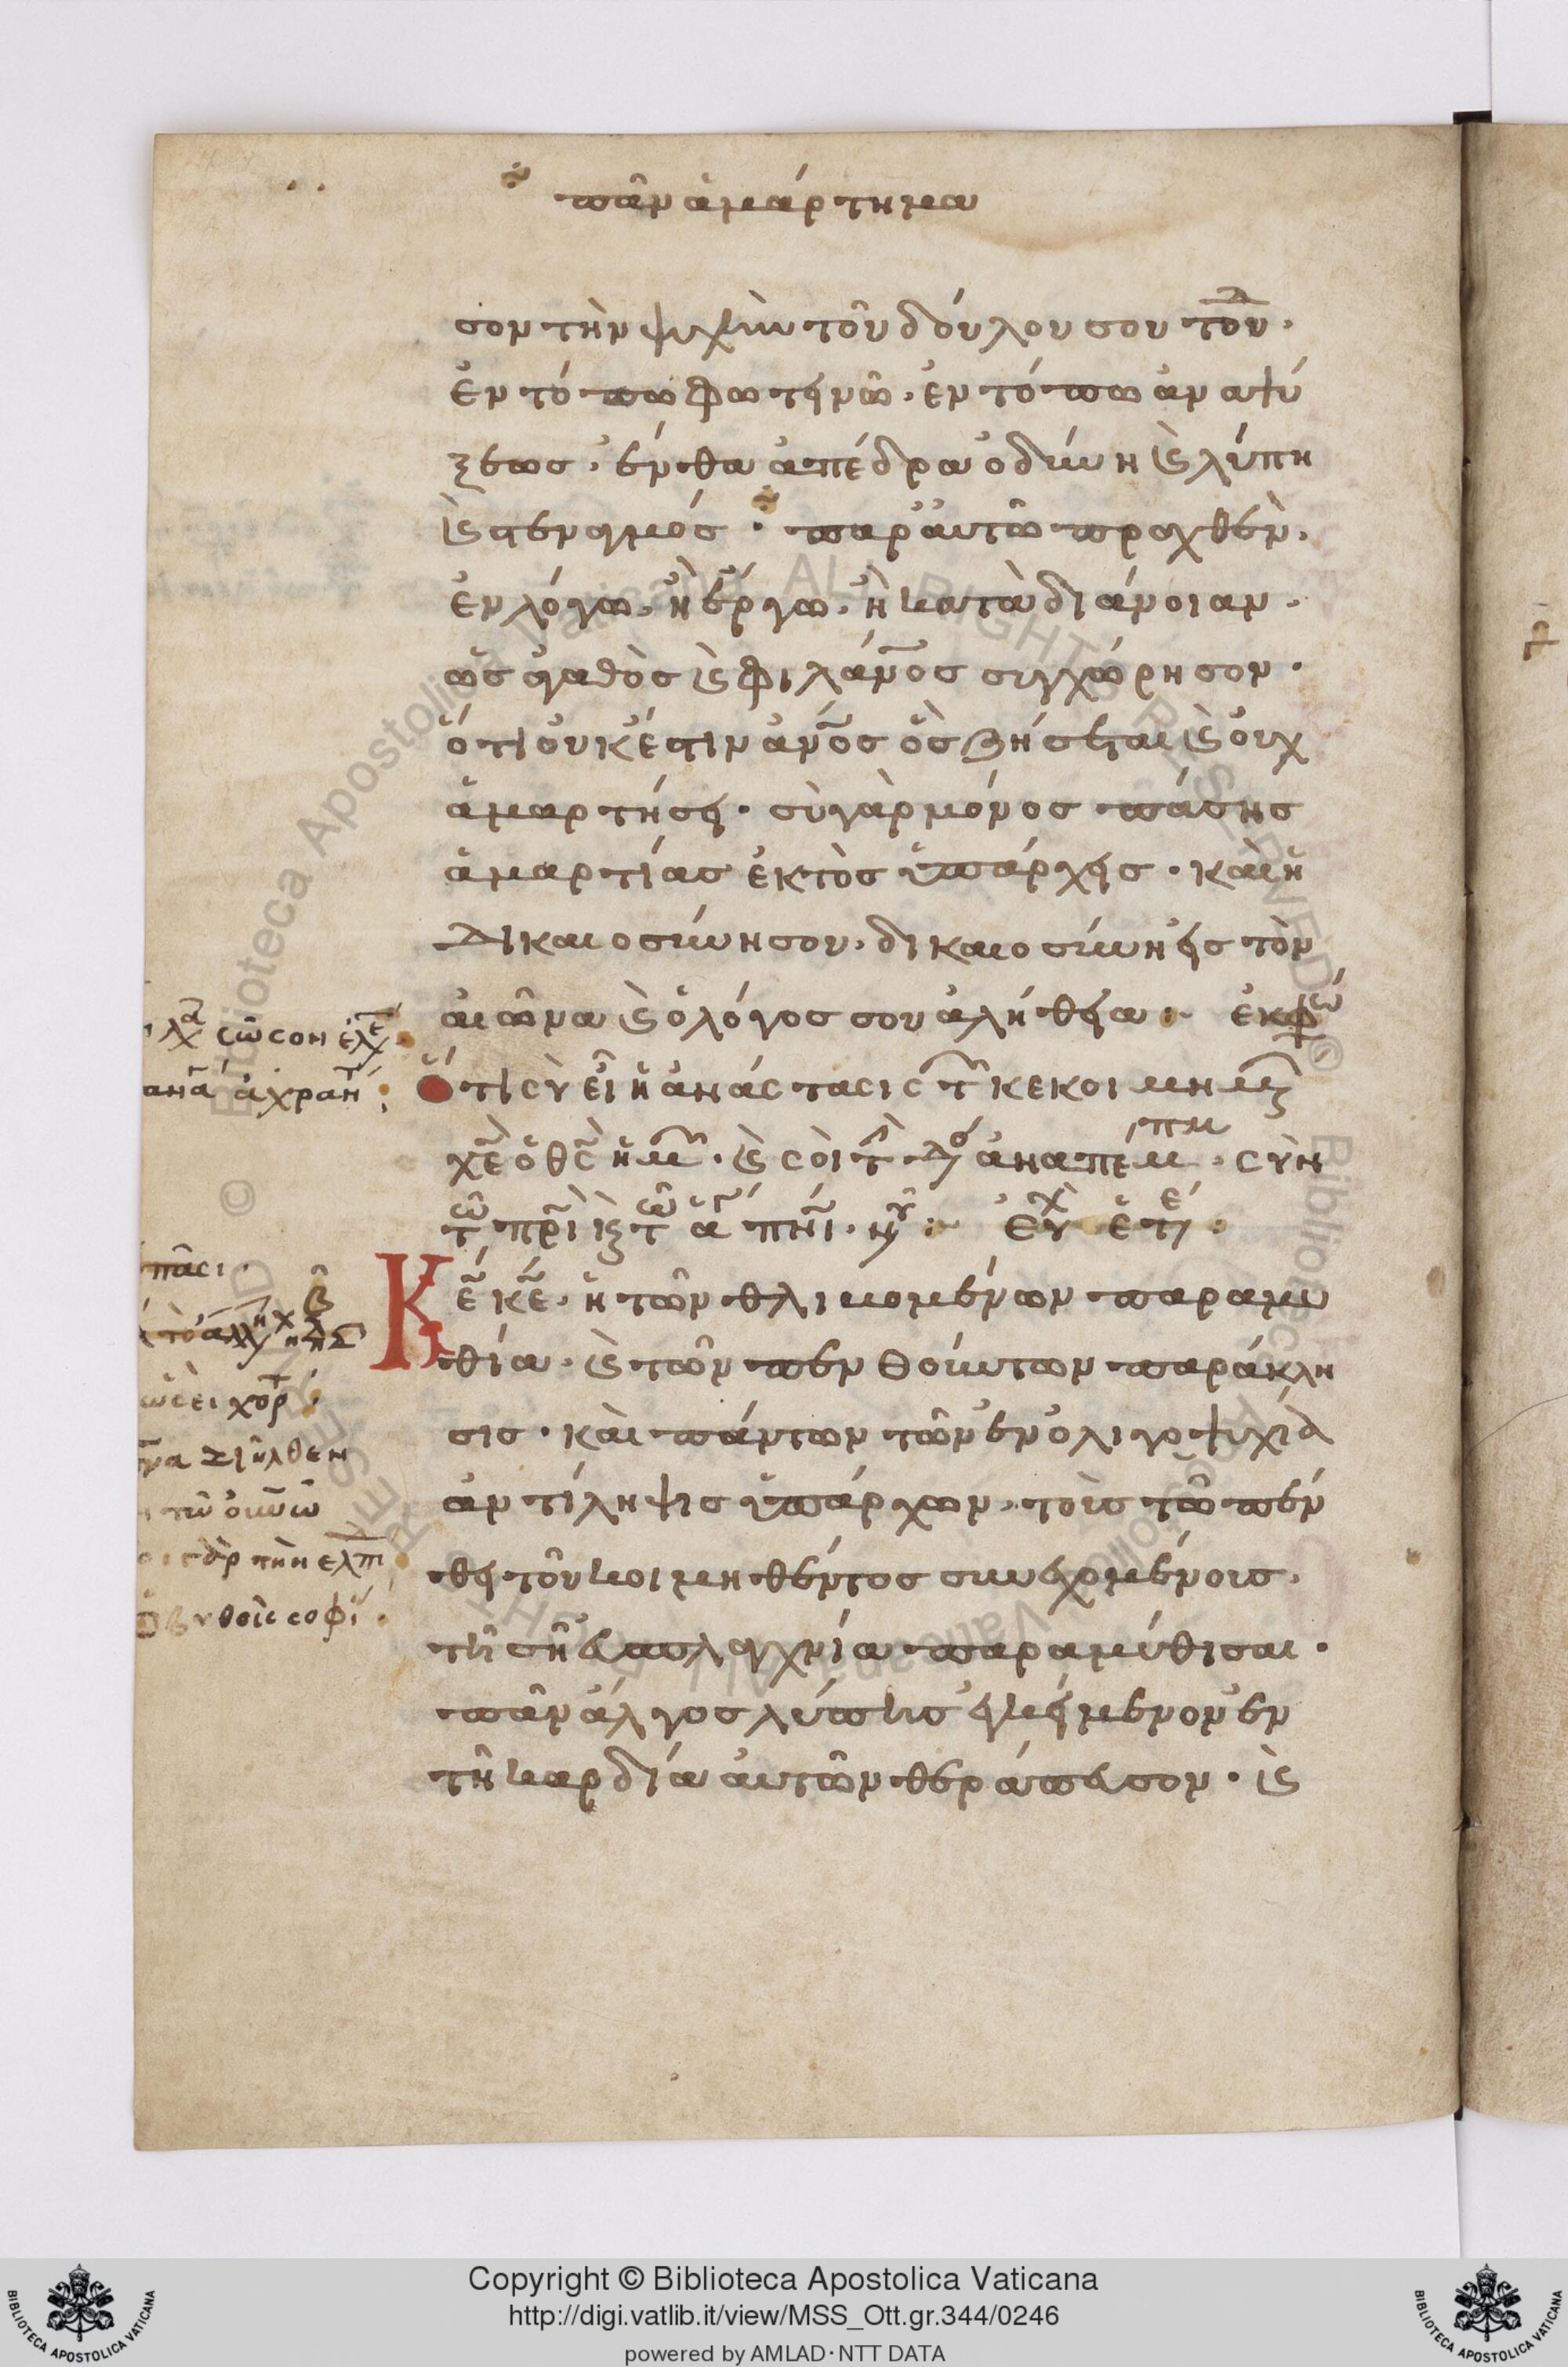 πᾶν ἁμάρτημα
σον τὴν ψυχὴν τοῦ δούλου σου τοῦδ.
ἐν τόπω φωτεινῶ. ἐν τόπω ἀναψύ
ξεως. ἔνθα ἀπέδρα ὀδύνη καὶ λύπη
καὶ στεναγμός. παρ' αὐτῶ πραχθὲν.
ἐν λόγω. ἢ ἔργω. ἢ κατὰ διάνοιαν.
ὡς ἀγαθὸς καὶ φιλάνος συγχώρησον.
ὅτι οὐκ ἔστιν ἄνος ὃς ζήσεται καὶ οὐχ
ἁμαρτήσει. σὺ γὰρ μόνος πάσης
ἁμαρτίας ἐκτὸς ὑπάρχεις. καὶ ἡ
δικαιοσύνη σου. δικαιοσύνη εἰς τὸν
αἰῶνα καὶ ὁ λόγος σου ἀλήθεια: ἐκφώ
Ὅτι σὺ εἶ ἡ ἀνάστασις τ κεκοιμημ
χὲ ὁ θς ἡμ. καὶ σοὶ τ δό ἀναπέμπ. σὺν
τῶ πρὶ καὶ τῶ ἁ πνὶ. νῦ: Εὐχ ἑτέ:
Κε κε. ἡ τῶν θλιβομένων παραμυ
θία. καὶ τῶν πενθούντων παράκλη
σις. καὶ πάντων τῶν ἐν ὀλιγοψυχία
ἀντίληψις ὑπάρχων. τοὺς τῶ πέν
θει τοῦ κοιμηθέντος συνεχομένους.
τῆ σῆ εὐσπλαγχνία παραμύθισαι.
πᾶν ἄλγος λύπης ἐγκείμενον ἐν
τῆ καρδία αὐτῶν θεράπευσον. καὶ
σῶσον
πᾶσι.
ὡσεὶ χόρ
διῆλθεν
τὴν ελπι
βυθοῖς σοφί
Copyright © Biblioteca Apostolica Vaticana
http://digi.vatlib.it/view/MSS_Ott.gr.344/0246
powered by AMLAD·NTT DATA
BIBLIOTECA APOSTOLICA VATICANA
BIBLIOTECA APOSTOLICA VATICANA